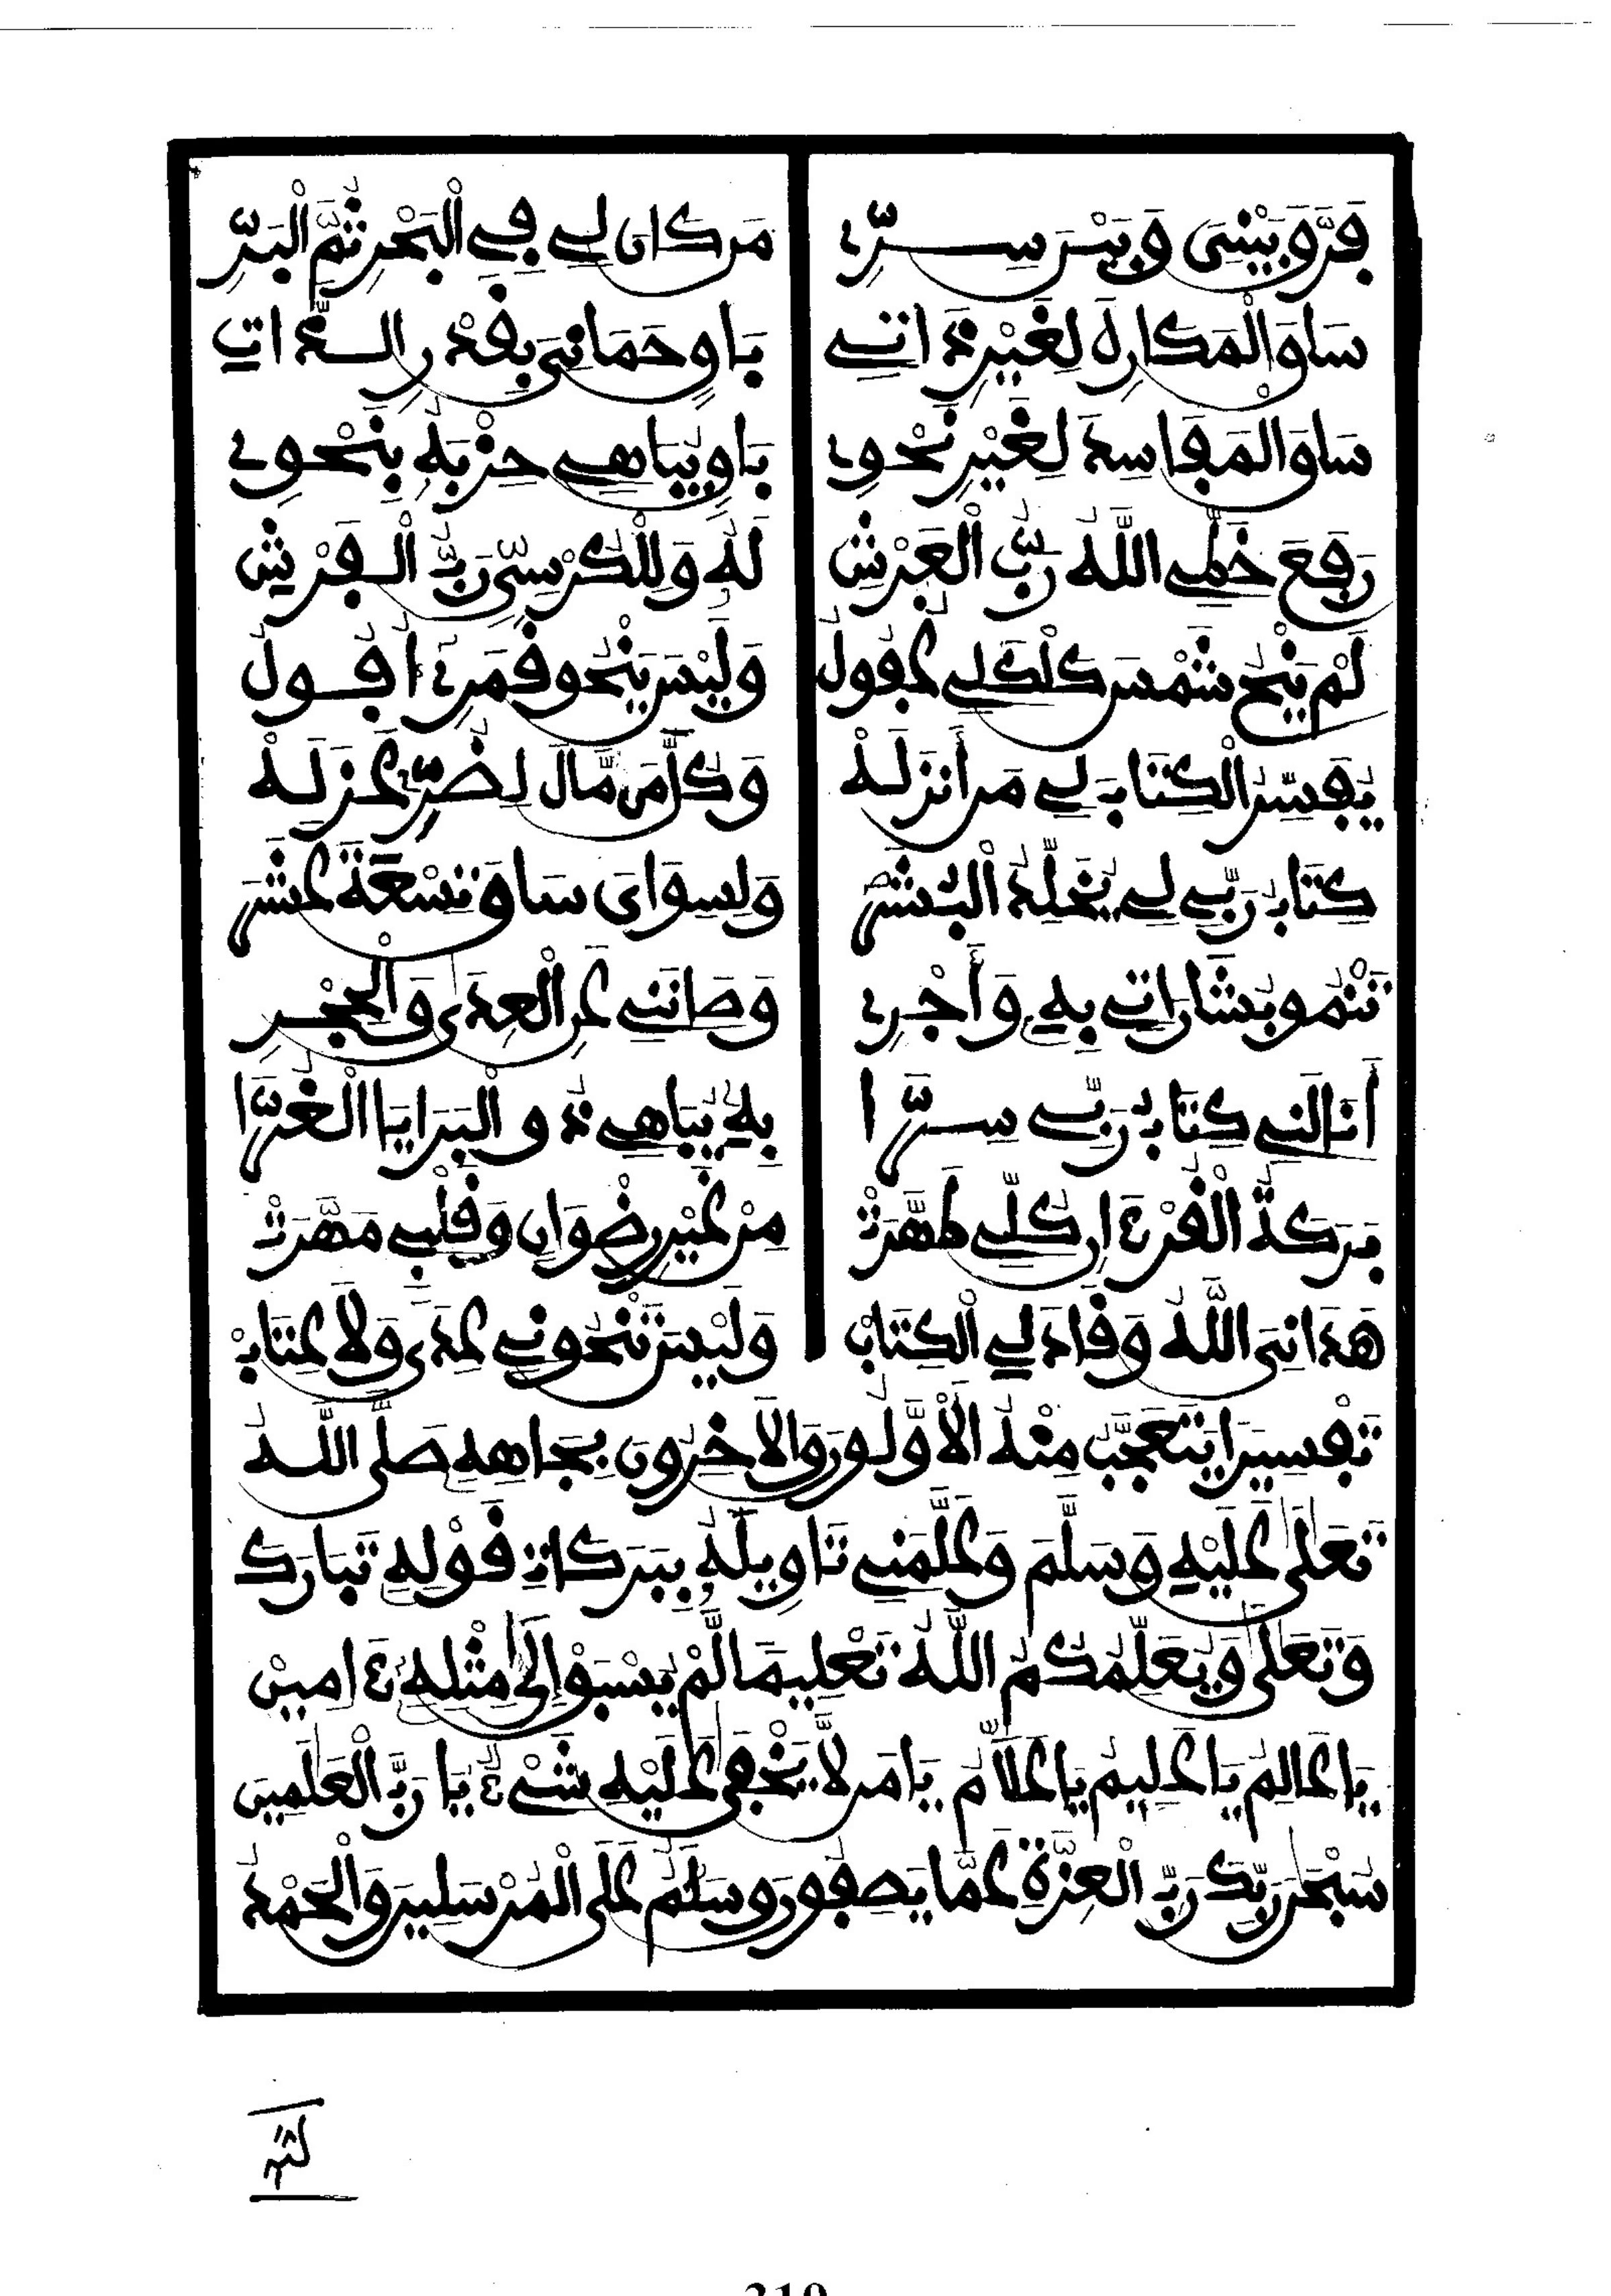 فَرَّ وَبَيْنِى وَبَيْنَ سِرِّى مَن كَانَ لِى فِى الْبَحْرِ ثُمَّ الْبَرِّ
سَاوَ الْمَكَارِهَ لِغَيْرِ ذَاتِى بَاوٍ حَمَانِىَ بِقَدْرِ الذَّاتِ
سَاوَ الْمَفَاسِدَ لِغَيْرِ نَحْوِى بَاوٍ يُبَاهِى حِزْبَهُ بِنَحْوِى
رَفَعَ خَطِّى اللَّهُ رَبُّ الْعَرْشِ لَهُ وَلِلْكُرْسِىِّ رَبُّ الْفَرْشِ
لَمْ يَنْحُ شَمْسَ كَلْكَلِى عُقُولُ وَلَيْسَ يَنْحُو قَمَرِى أُفُولُ
يُفَسِّرُ الْكِتَابَ لِى مَنْ أَنزَلَهْ وَكُلُّ مَن مَّالَ لِضُرِّى عَزَلَهْ
كِتَابُ رَبِّى لِى يُخَلِّدُ الْبُشَرْ وَلِسِوَاىَ سَاوَ تِسْعَةَ عَشَرْ
تَنْمُو بَشَارَاتِى بِهِ وَأَجْرِى وَصَانَنِى عَنِ الْعِدَى وَالْحِجْرِ
أَنَالَنِى كِتَابُ رَبِّى سِرَّا بِهِ يُبَاهِى ذُو الْبَرَايَا الْغُرَّا
بَرَكَةُ الْقُرْءَانِ كُلِّى طَهَّرَتْ مِنْ غَيْرِ رِضْوَانٍ وَقَلْبِى مَهَّرَتْ
هَدَانِىَ اللَّهُ وَقَادَ لِى الْكِتَابْ وَلَيْسَ تَنْحُونِى عِدًى وَلَا عِتَابْ
تَفْسِيرًا يَتَعَجَّبُ مِنْهُ الْأَوَّلُونَ وَالْآخِرُونَ بِجَاهِهِ صَلَّى اللَّهُ
تَعَلَى عَلَيْهِ وَسَلَّمَ وَعَلَّمَنِى تَاوِيلَهُ بِبَرَكَاتِ قَوْلِهِ تَبَارَكَ
وَتَعَلَى وَيُعَلِّمُكُمُ اللَّهُ تَعْلِيمًا لَّمْ يُسْبَقْ إِلَى مِثْلِهِ ءَامِينَ
يَا عَالِمُ يَا عَلِيمُ يَا عَلَّامُ يَا مَن لَّا يَخْفَى عَلَيْهِ شَىْءٌ يَا رَبَّ الْعَلَمِينَ
سُبْحَنَ رَبِّكَ رَبِّ الْعِزَّةِ عَمَّا يَصِفُونَ وَسَلَمٌ عَلَى الْمُرْسَلِينَ وَالْحَمْدُ
310